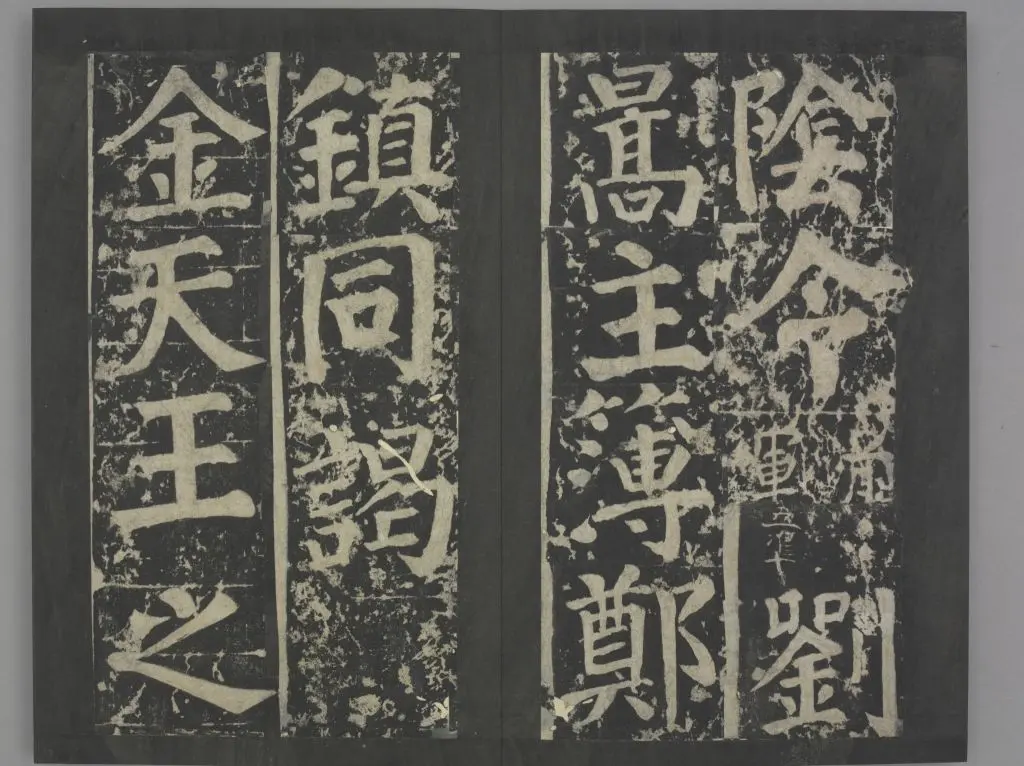 陰令劉
軍
暠主簿鄭
鎮同謁
金天王之